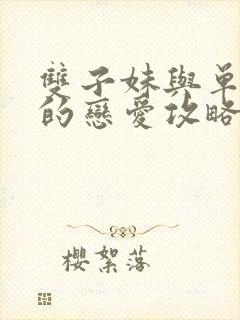 雙子妹與單
的戀愛攻略
櫻絮落